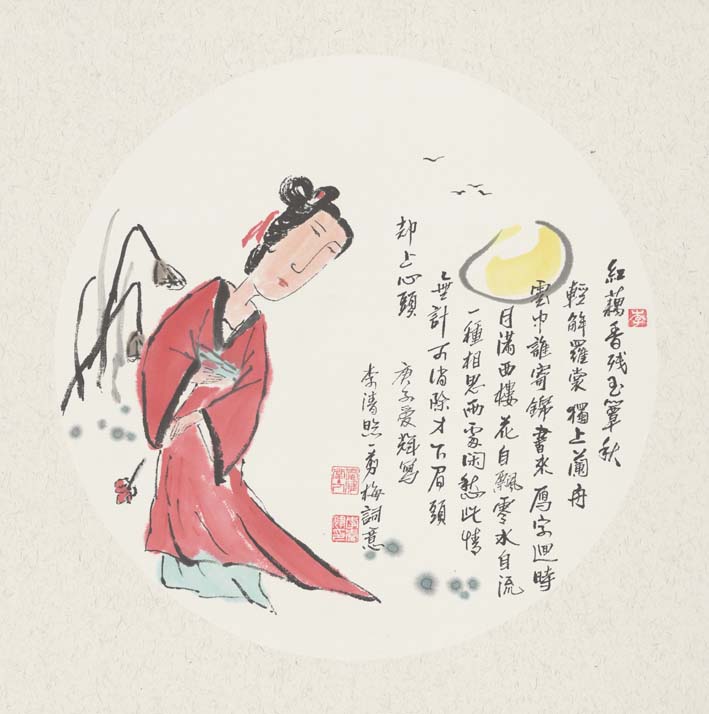 紅藕香残玉簟秋
輕解羅裳獨上蘭舟
雲中誰寄錦書來雁字迴時
月滿西樓花自飄零水自流
一種相思兩處闲愁此情
無計可消除才下眉頭
却上心頭
庚子爱輝寫
李清照一剪梅詞意
李